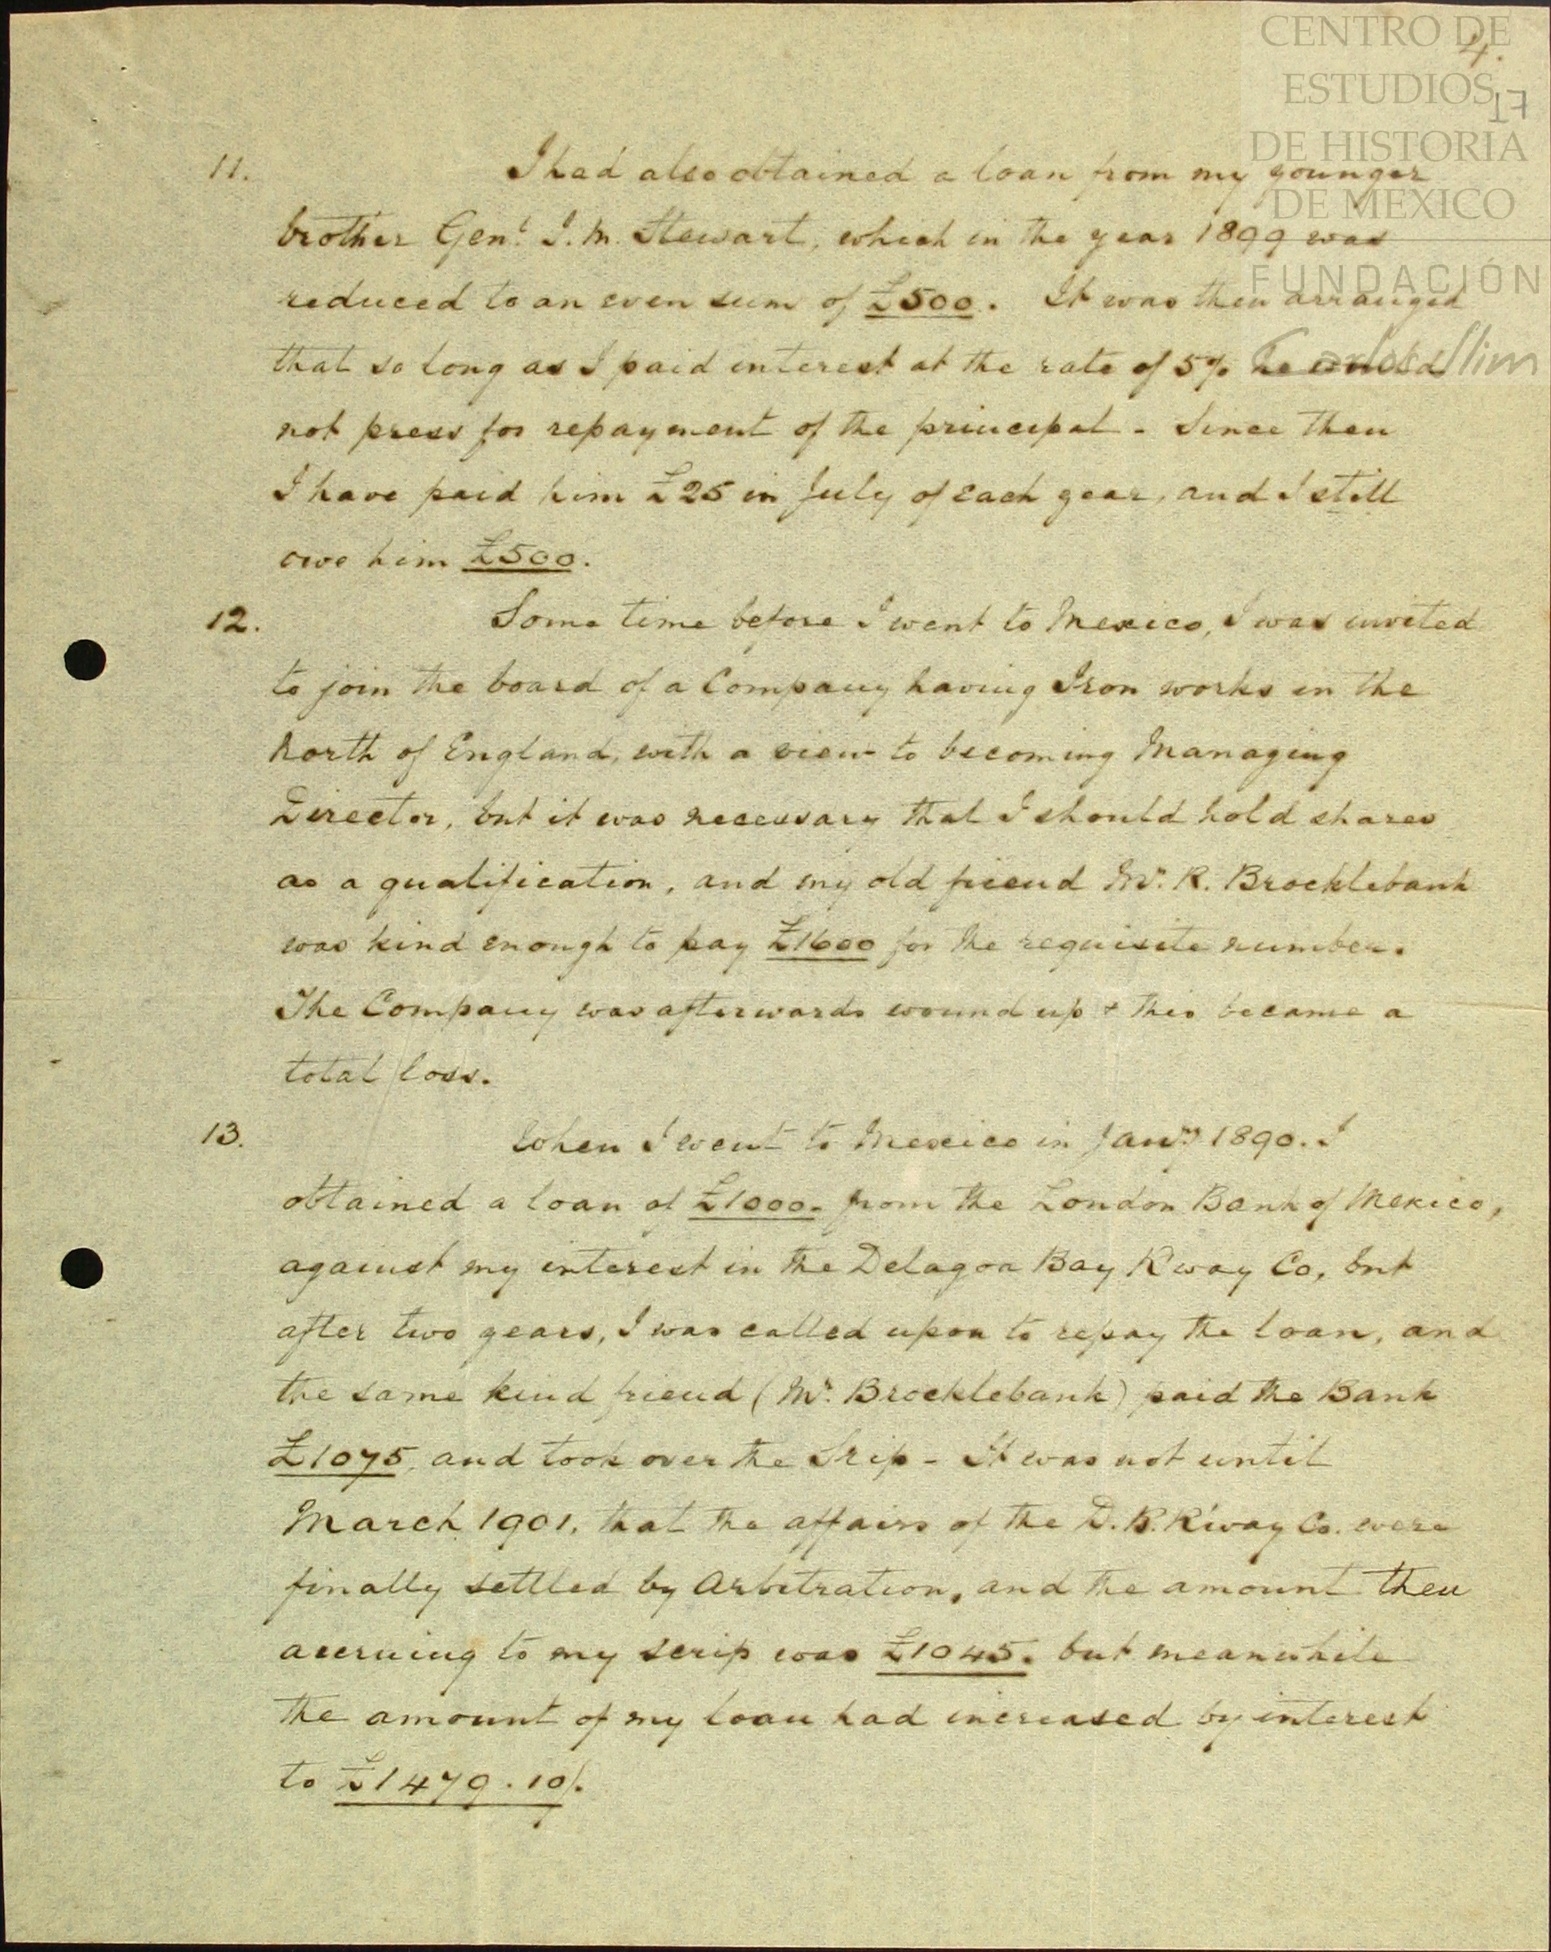 CENTRO DE
4.
ESTUDIOS
17
DE HISTORIA
DE MEXICO
FUNDACIÓN
Carlos Slim
11. I had also obtained a loan from my younger
brother Genl. J. M. Stewart, which in the year 1899 was
reduced to an even sum of £500. It was then arranged
that so long as I paid interest at the rate of 5% he would
not press for repayment of the principal - Since then
I have paid him £25 in July of each year, and I still
owe him £500.
12. Some time before I went to Mexico, I was invited
to join the board of a Company having Iron works in the
North of England, with a view to becoming Managing
Director, but it was necessary that I should hold shares
as a qualification, and my old friend Mr. R. Brocklebank
was kind enough to pay £1600 for the requisite number.
The Company was afterwards wound up + this became a
total loss.
13. When I went to Mexico in Jany 1890. I
obtained a loan of £1000. from the London Bank of Mexico,
against my interest in the Delagoa Bay Rway Co, but
after two years, I was called upon to repay the loan, and
the same kind friend (Mr. Brocklebank) paid the Bank
£1075, and took over the Scrip - It was not until
March 1901, that the affairs of the D. B. R'way Co. were
finally settled by Arbitration, and the amount then
accruing to my scrip was £1045. but meanwhile
the amount of my loan had increased by interest
to £1479.10/.